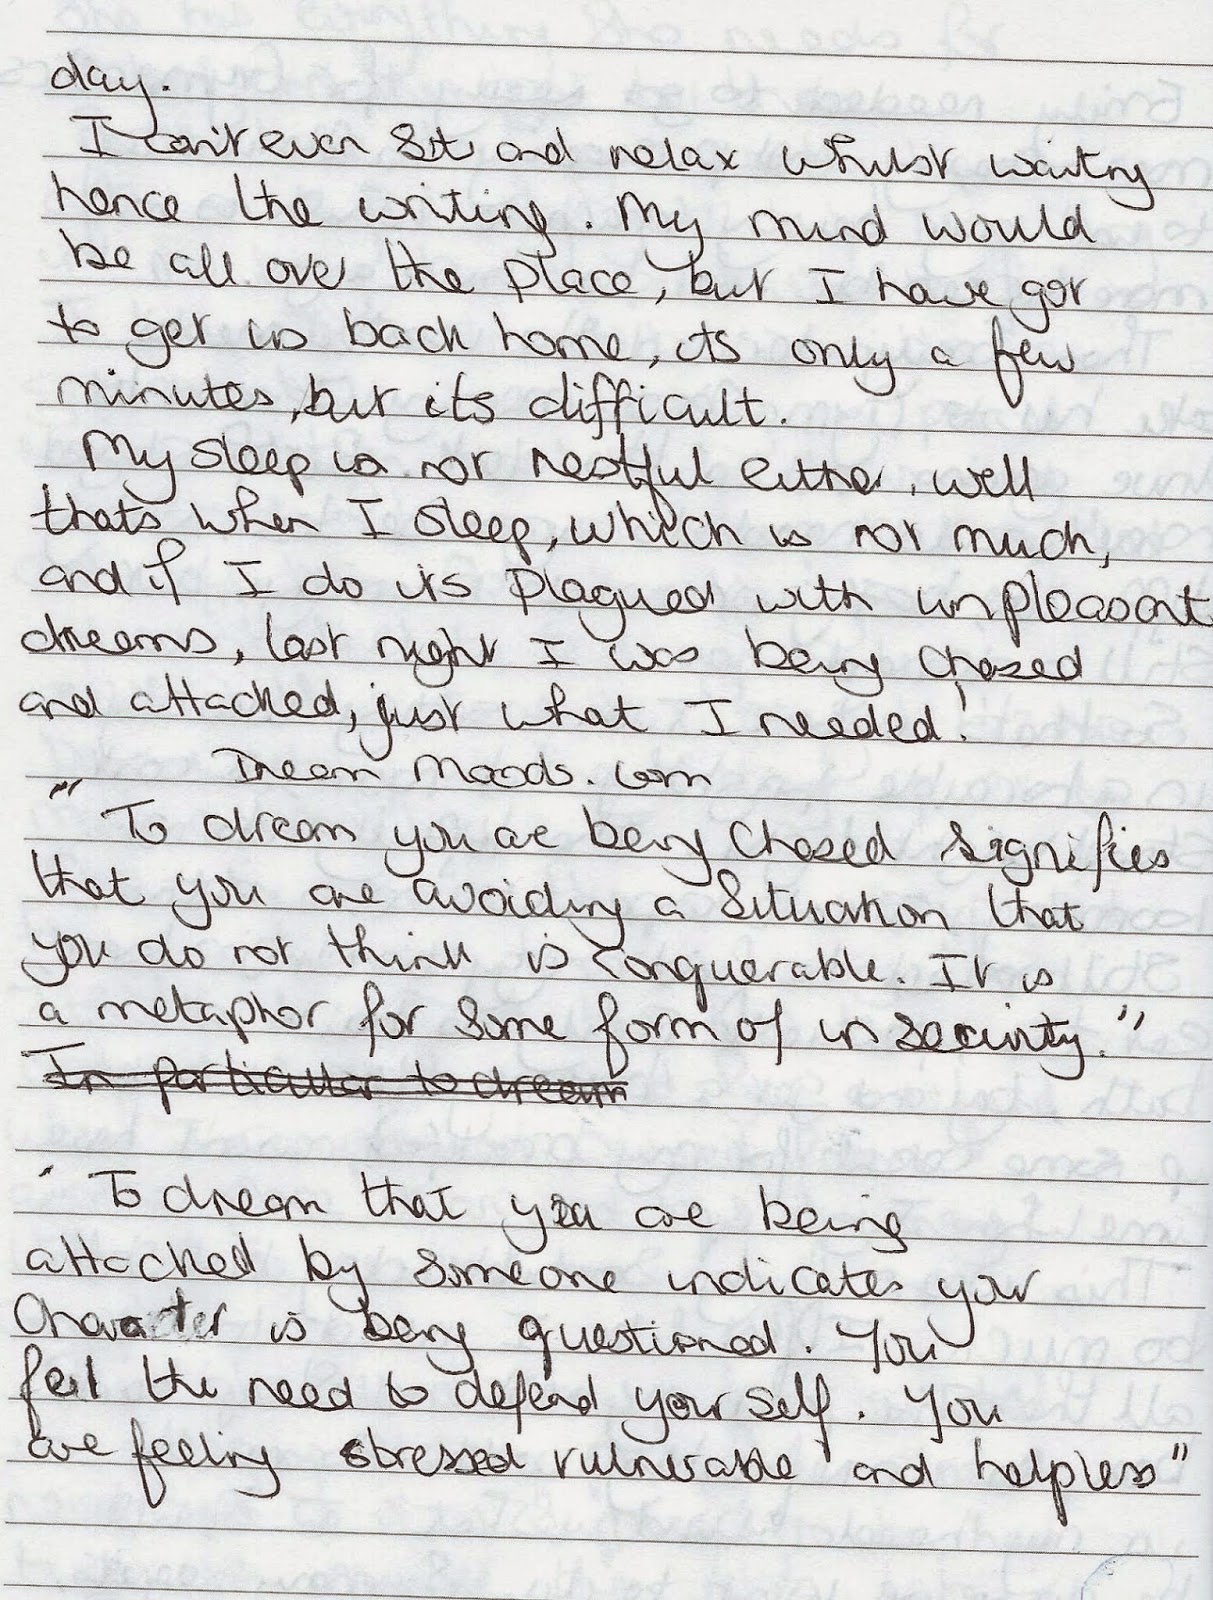 day.
I can't even sit and relax whilst waiting
hence the writing. My mind would
be all over the place, but I have got
to get us back home, its only a few
minutes, but its difficult.
My sleep is not restful either, well
thats when I sleep, which is not much,
and if I do its plagued with unpleasant
dreams, last night I was being chased
and attacked, just what I needed!
Dream Moods.com
"To dream you are being chased signifies
that you are avoiding a situation that
you do not think is conquerable. It is
a metaphor for some form of insecurity."
In particular to dream
'To dream that you are being
attacked by someone indicates your
Character is being questioned. You
feel the need to defend yourself. You
are feeling stressed vulnerable and helpless"